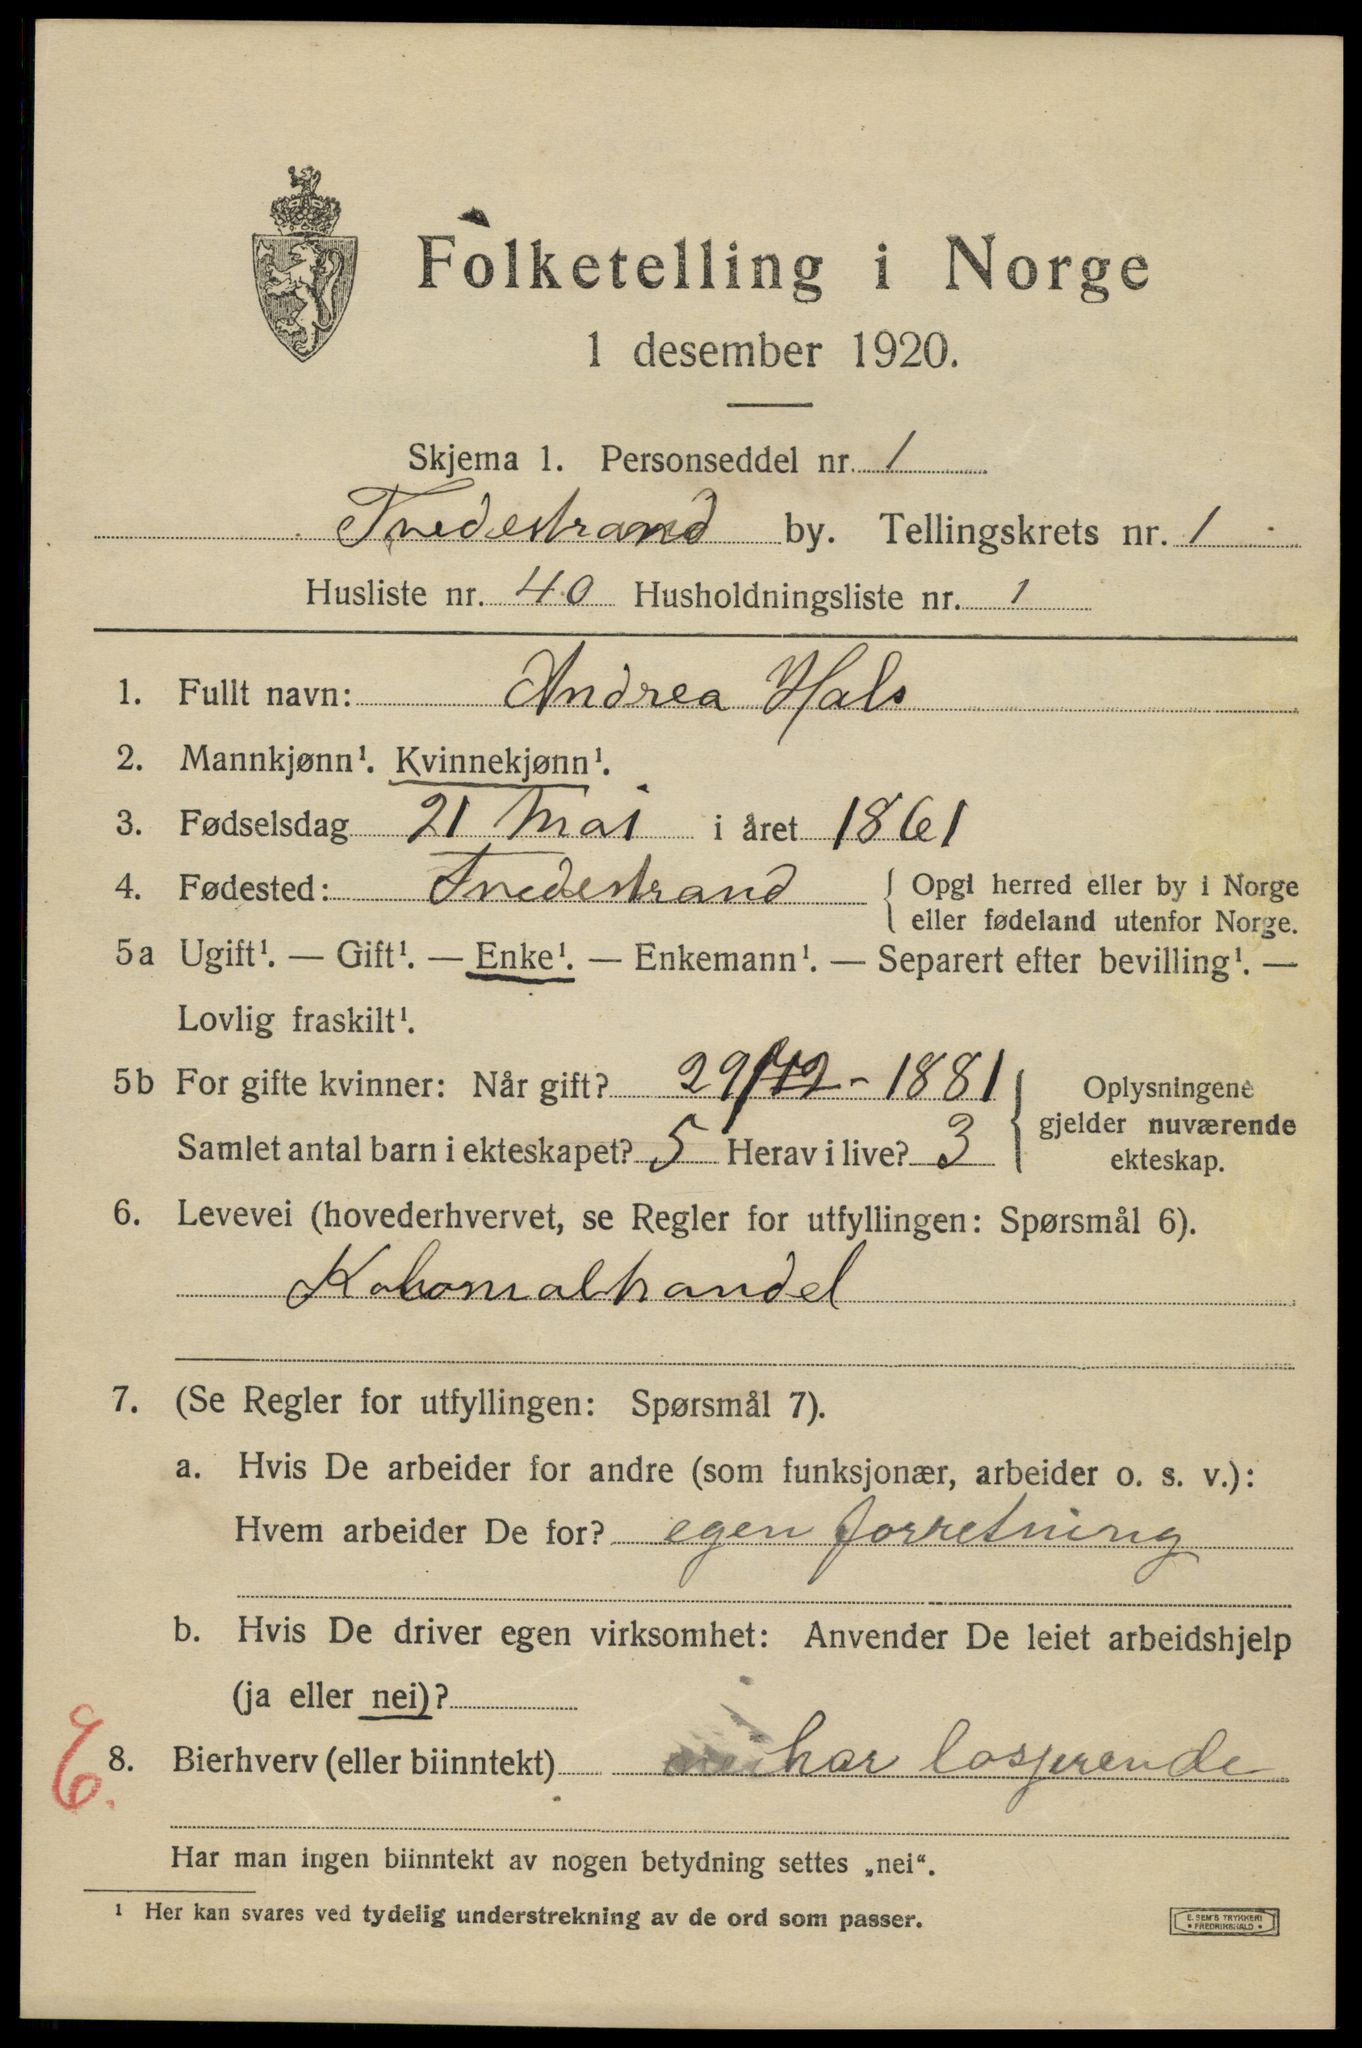 Folketelling i Norge
1 desember 1920.
Skjema 1. Personseddel nr. 1
Tvedestrand by. Tellingskrets nr. 1
Husliste nr. 40 Husholdningsliste nr. 1
1. Fullt navn: Andrea Hals
2. Mannkjønn¹. Kvinnekjønn¹.
3. Fødselsdag 21 Mai i året 1861
4. Fødested: Tvedestrand { Opgi herred eller by i Norge
eller fødeland utenfor Norge.
5a Ugift¹. — Gift¹. — Enke¹. — Enkemann¹. — Separert efter bevilling¹. —
Lovlig fraskilt¹.
5b For gifte kvinner: Når gift? 29/12 - 1881
Samlet antal barn i ekteskapet? 5 Herav i live? 3
} Oplysningene
gjelder nuværende
ekteskap.
6. Levevei (hovederhvervet, se Regler for utfyllingen: Spørsmål 6).
Kolonialhandel
7. (Se Regler for utfyllingen: Spørsmål 7).
a. Hvis De arbeider for andre (som funksjonær, arbeider o. s. v.):
Hvem arbeider De for? egen forretning
b. Hvis De driver egen virksomhet: Anvender De leiet arbeidshjelp
(ja eller nei)?
8. Bierhverv (eller biinntekt) har losjerende
Har man ingen biinntekt av nogen betydning settes „nei“.
¹ Her kan svares ved tydelig understrekning av de ord som passer.
E. SEM'S TRYKKERI
• FREDRIKSHALD •